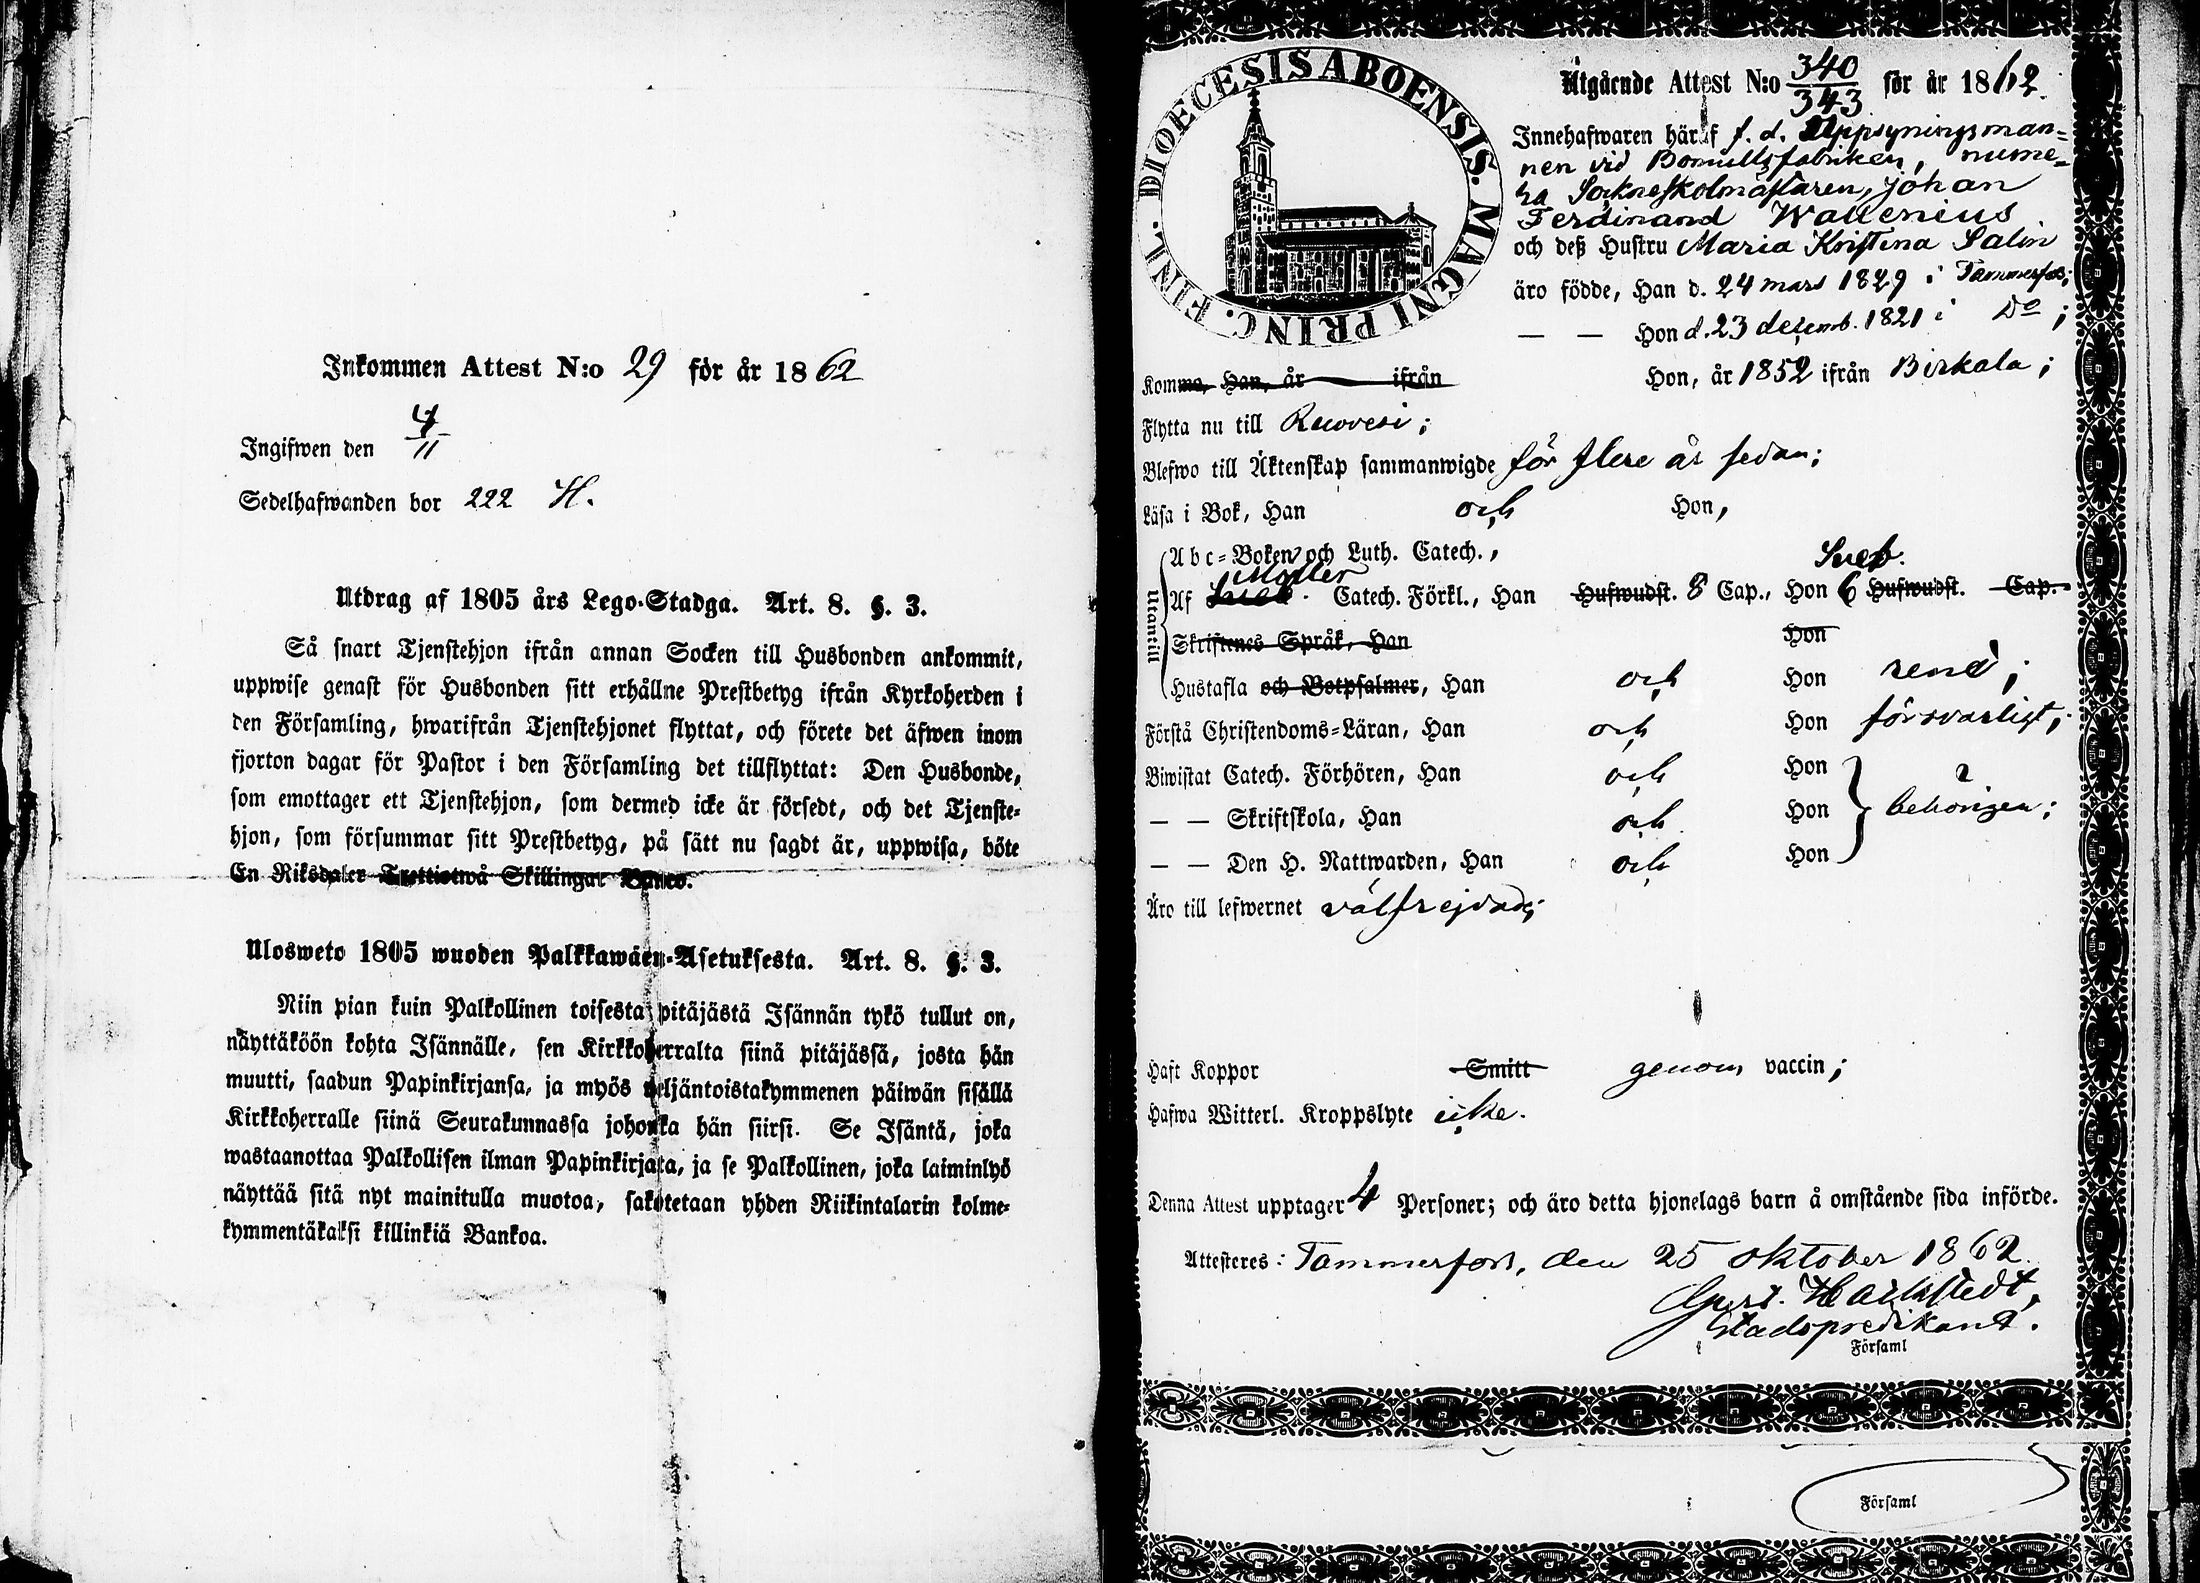 Inkommen Attest N:o 29 för år 1862
Ingifwen den 4/11
Sedelhafwanden bor 222 H.
Utdrag af 1805 års Lego-Stadga. Art. 8. §. 3.
Så snart Tjenstehjon ifrån annan Socken till Husbonden ankommit,
uppwise genast för Husbonden sitt erhållne Prestbetyg ifrån Kyrkoherden i
den Församling, hwarifrån Tjenstehjonet flyttat, och förete det äfwen inom
fjorton dagar för Pastor i den Församling det tillflyttat: Den Husbonde,
som emottager ett Tjenstehjon, som dermed icke är försedt, och det Tjenste-
hjon, som försummar sitt Prestbetyg, på sätt nu sagdt är, uppwisa, böte
En Riksdaler Trettiotwå Skillingar Banco.
Ulosweto 1805 wuoden Palkkawäen-Asetuksesta. Art. 8. §. 3.
Niin pian kuin Palkollinen toisesta pitäjästä Isännän tykö tullut on,
näyttäköön kohta Isännälle, sen Kirkkoherralta siinä pitäjässä, josta hän
muutti, saadun Papinkirjansa, ja myös neljäntoistakymmenen päiwän sisällä
Kirkkoherralle siinä Seurakunnassa johonka hän siirsi. Se Isäntä, joka
wastaanottaa Palkollisen ilman Papinkirjata, ja se Palkollinen, joka laiminlyö
näyttää sitä nyt mainitulla muotoa, sakotetaan yhden Riikintalarin kolme-
kymmentäkaksi killinkiä Bankoa.
DIOECESIS ABOENSIS. MAGNI PRINC. FINL.
Utgående Attest N:o 340/343 för år 1862.
Innehafwaren häraf f. d. Uppsyningsman-
nen vid Bomullsfabriken, nume-
ra Sockneskolmästaren, Johan
Ferdinand Wallenius
och deß Hustru Maria Kristina Salin
äro födde, Han d. 24 mars 1829 i Tammerfos;
— — Hon d. 23 decemb. 1821 i Do ;
Komma, Han, år ifrån Hon, år 1852 ifrån Birkala ;
Flytta nu till Ruovesi ;
Blefwo till Äktenskap sammanwigde för flere år sedan;
Läsa i Bok, Han och Hon,
Utantill
Abc-Boken och Luth. Catech.,
Möller Sveb.
Af Sveb. Catech. Förkl., Han Hufwudst. 8 Cap., Hon 6 Hufwudst. Cap.
Skriftenes Språk, Han Hon
Hustafla och Botpsalmer, Han och Hon rent ;
Förstå Christendoms-Läran, Han och Hon försvarligt ;
Biwistat Catech. Förhören, Han och Hon
— — Skriftskola, Han och Hon behörigen ;
— — Den H. Nattwarden, Han och Hon
Äro till lefwernet välfrejdade;
Haft Koppor Smitt genom vaccin ;
Hafwa Witterl. Kroppslyte icke.
Denna Attest upptager 4 Personer; och äro detta hjonelags barn å omstående sida införde.
Attesteres: Tammerfors, den 25 oktober 1862.
Stadspredikant.
Församl
Församl